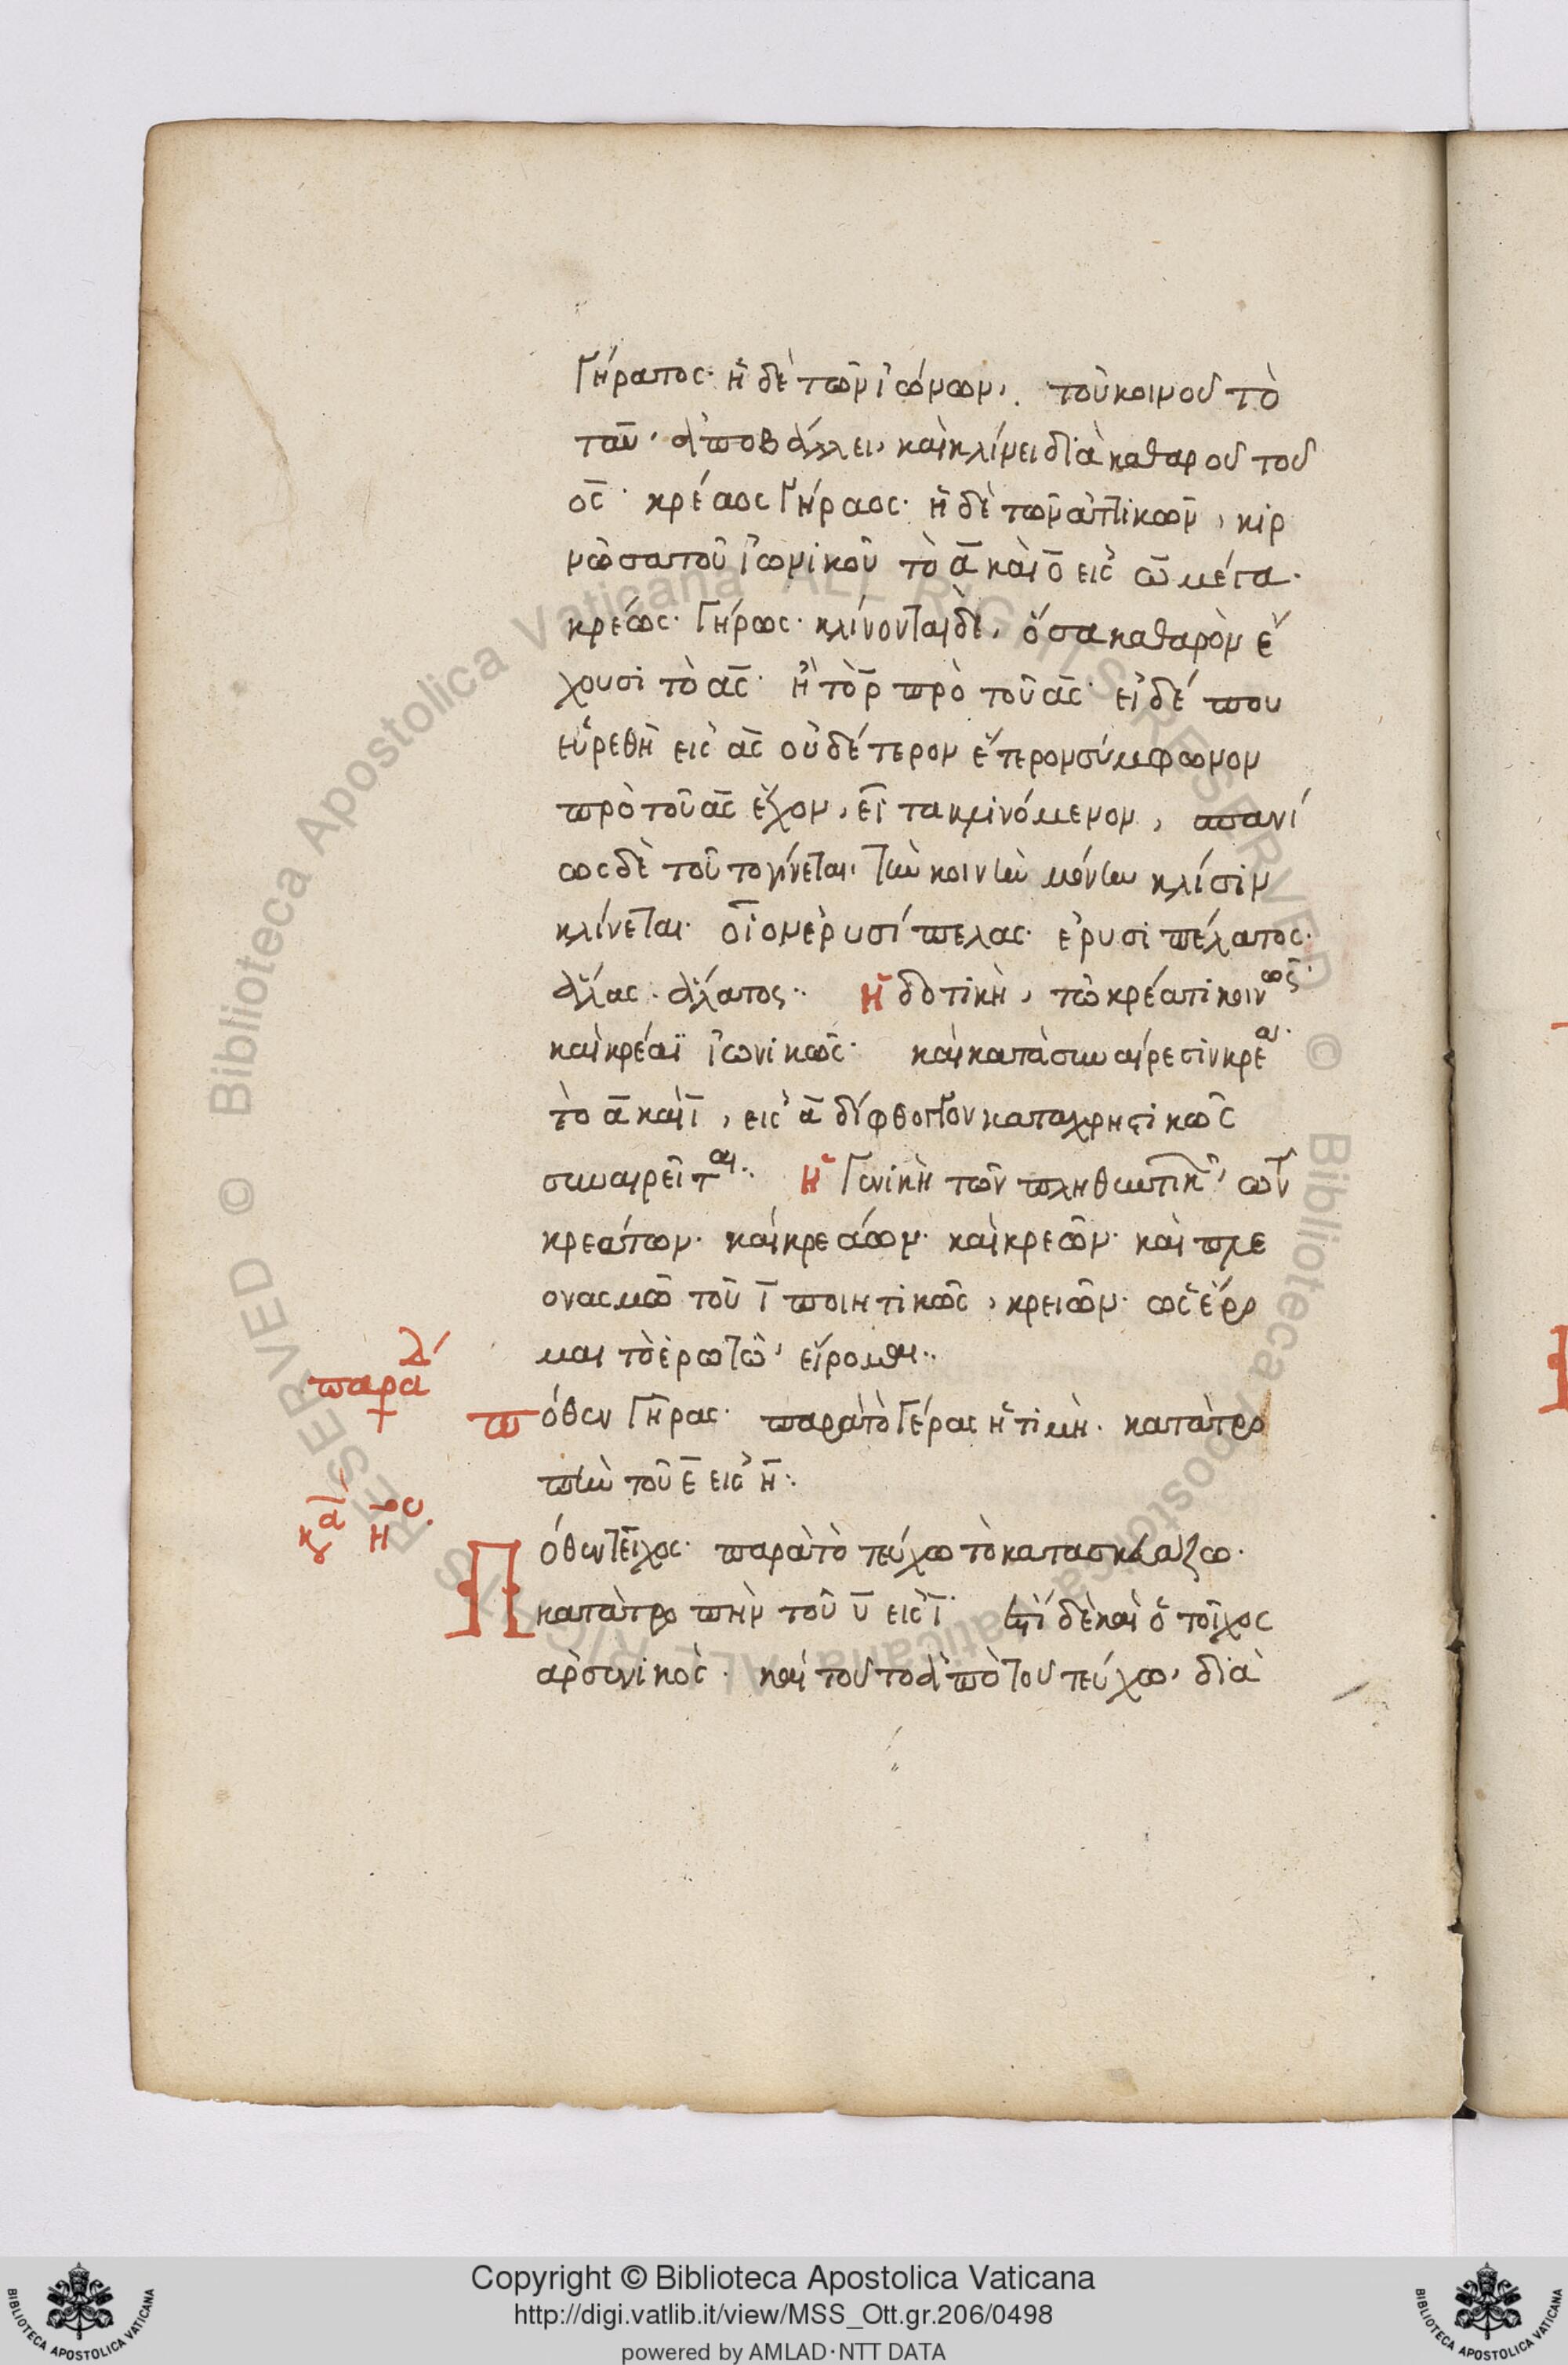 γήρατος· ἡ δὲ τῶν ἰώνων, τοῦ κοινοῦ τὸ
ταῦ, ἀποβάλλει, καὶ κλίνει διὰ καθαροῦ τοῦ
ος· κρέαος γήραος· ἡ δὲ τῶν ἀττικῶν, κιρ
νῶσα τοῦ ἰωνικοῦ τὸ α καὶ ο εἰς ω μέγα·
κρέως· γήρως· κλίνονται δὲ, ὅσα καθαρὸν ἔ
χουσι τὸ ας· ἢ τὸ ρ πρὸ τοῦ ας· εἰ δέ που
εὑρεθῆ εἰς ας οὐδέτερον ἕτερον σύμφωνον
πρὸ τοῦ ας ἔχον, εἶτα κλινόμενον, σπανί
ως δὲ τοῦτο γίνεται, τὴν κοινὴν μόνην κλίσιν
κλίνεται· οἷον ἐρυσίπελας· ἐρυσιπέλατος·
ἅλας· ἅλατος·. ἡ δοτικὴ, τῶ κρέατι κοινῶς·
καὶ κρέαϊ ἰωνικῶς· καὶ κατὰ συναίρεσιν κρέαι·
τὸ α καὶ ι, εἰς α δίφθογγον καταχρηστικῶς
συναιρεῖται·. ἡ γενικὴ τῶν πληθυντικῶν, τῶν
κρεάτων· καὶ κρεάων· καὶ κρεῶν· καὶ πλε
ονασμῶ τοῦ ι ποιητικῶς, κρειῶν· ὡς ἔρο
μαι τὸ ἐρωτῶ, εἴρομαι·.
παρα λ
πόθεν γῆρας· παρὰ τὸ γέρας ἡ τιμὴ· κατὰ τρο
πὴν τοῦ ε εἰς η·.
Πόθεν τεῖχος· παρὰ τὸ τεύχω τὸ κατασκευάζω·
κατὰ τροπὴν τοῦ υ εἰς ι· ἔστι δὲ καὶ ὁ τοῖχος
ἀρσενικὸς· καὶ τοῦτο ἀπὸ τοῦ τεύχω, διὰ
Copyright © Biblioteca Apostolica Vaticana
http://digi.vatlib.it/view/MSS_Ott.gr.206/0498
powered by AMLAD·NTT DATA